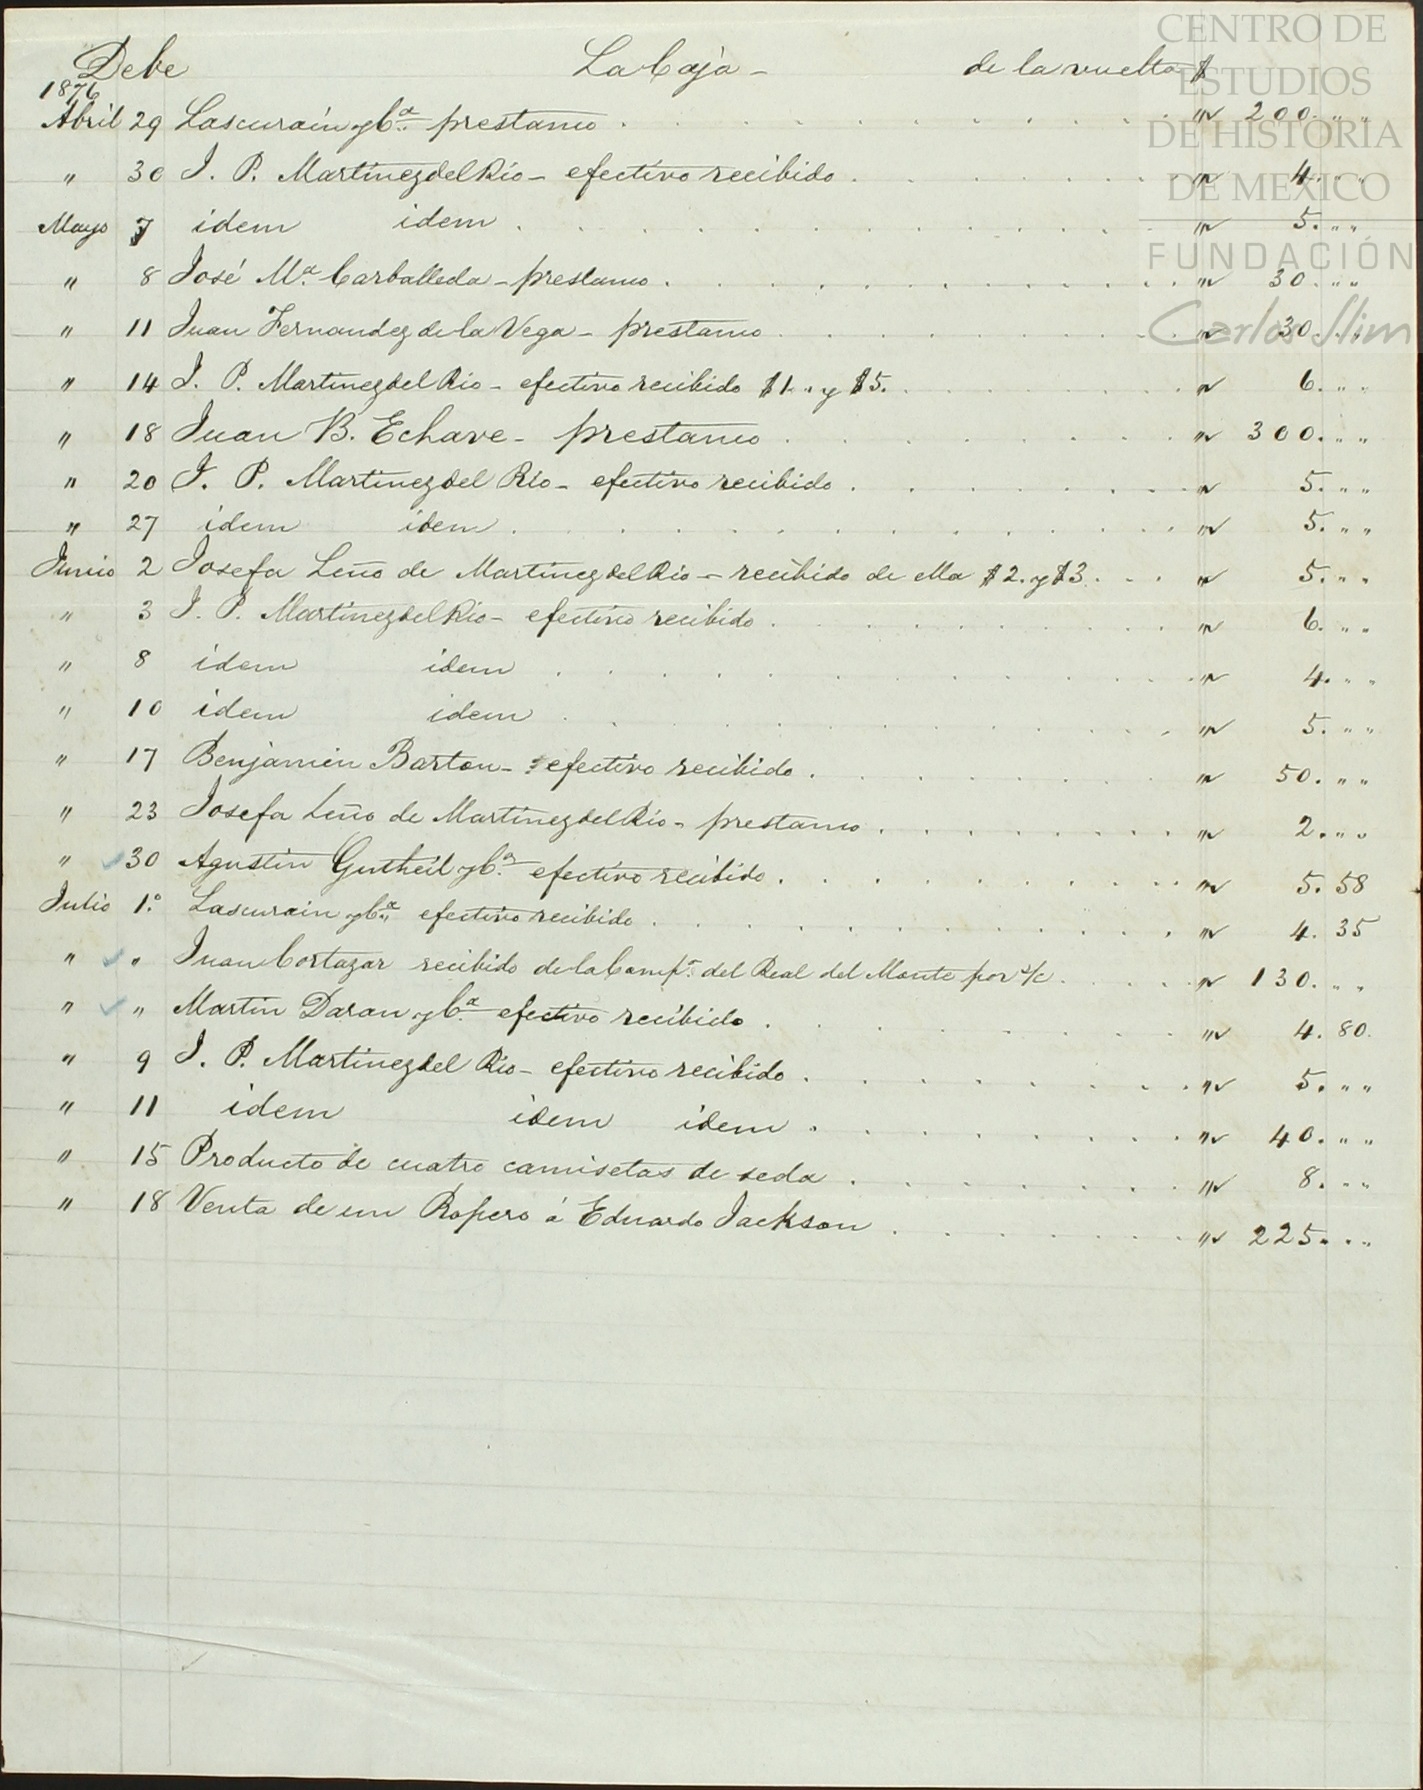 Debe La Caja - de la vuelta $
1876
Abril 29 Lascurain y Cª prestamo . . . . . . . . " 200. " "
" 30 J. P. Martinez del Rio - efectivo recibido . . . . . . " 4. " "
Mayo 7 idem idem . . . . . . . . . . " 5. " "
" 8 José Mª Carballeda - prestamo . . . . . . . . " 30. " "
" 11 Juan Fernandez de la Vega - prestamo . . . . . . . " 30. " "
" 14 J. P. Martinez del Rio - efectivo recibido $1. . y $5. . . . . . " 6. " "
" 18 Juan B. Echave - prestamo . . . . . . . " 300. " "
" 20 J. P. Martinez del Rio - efectivo recibido . . . . . . " 5. " "
" 27 idem idem . . . . . . . . . " 5. " "
Junio 2 Josefa Leño de Martinez del Rio - recibido de ella $2. y $3 . . . " 5. " "
" 3 J. P. Martinez del Rio - efectivo recibido . . . . . . . " 6. " "
" 8 idem idem . . . . . . . . . " 4. " "
" 10 idem idem . . . . . . . . . " 5. " "
" 17 Benjamin Barton - efectivo recibido . . . . . . . " 50. " "
" 23 Josefa Leño de Martinez del Rio - prestamo . . . . . . . " 2. " "
" 30 Agustin Gutheil y Cª efectivo recibido . . . . . . . " 5. 58
Julio 1.º Lascurain y Cª efectivo recibido . . . . . . . . " 4. 35
" " Juan Cortazar recibido de la Compª del Real del Monte por s/c . . . . " 130. " "
" " Martin Daran y Cª efectivo recibido . . . . . . . " 4. 80.
" 9 J. P. Martinez del Rio - efectivo recibido . . . . . . . " 5. " "
" 11 idem idem idem . . . . . . . " 40. " "
" 15 Producto de cuatro camisetas de seda . . . . . . " 8. " "
" 18 Venta de un Ropero á Eduardo Jackson . . . . . . " 225. " "
CENTRO DE
ESTUDIOS
DE HISTORIA
DE MEXICO
FUNDACIÓN
Carlos Slim